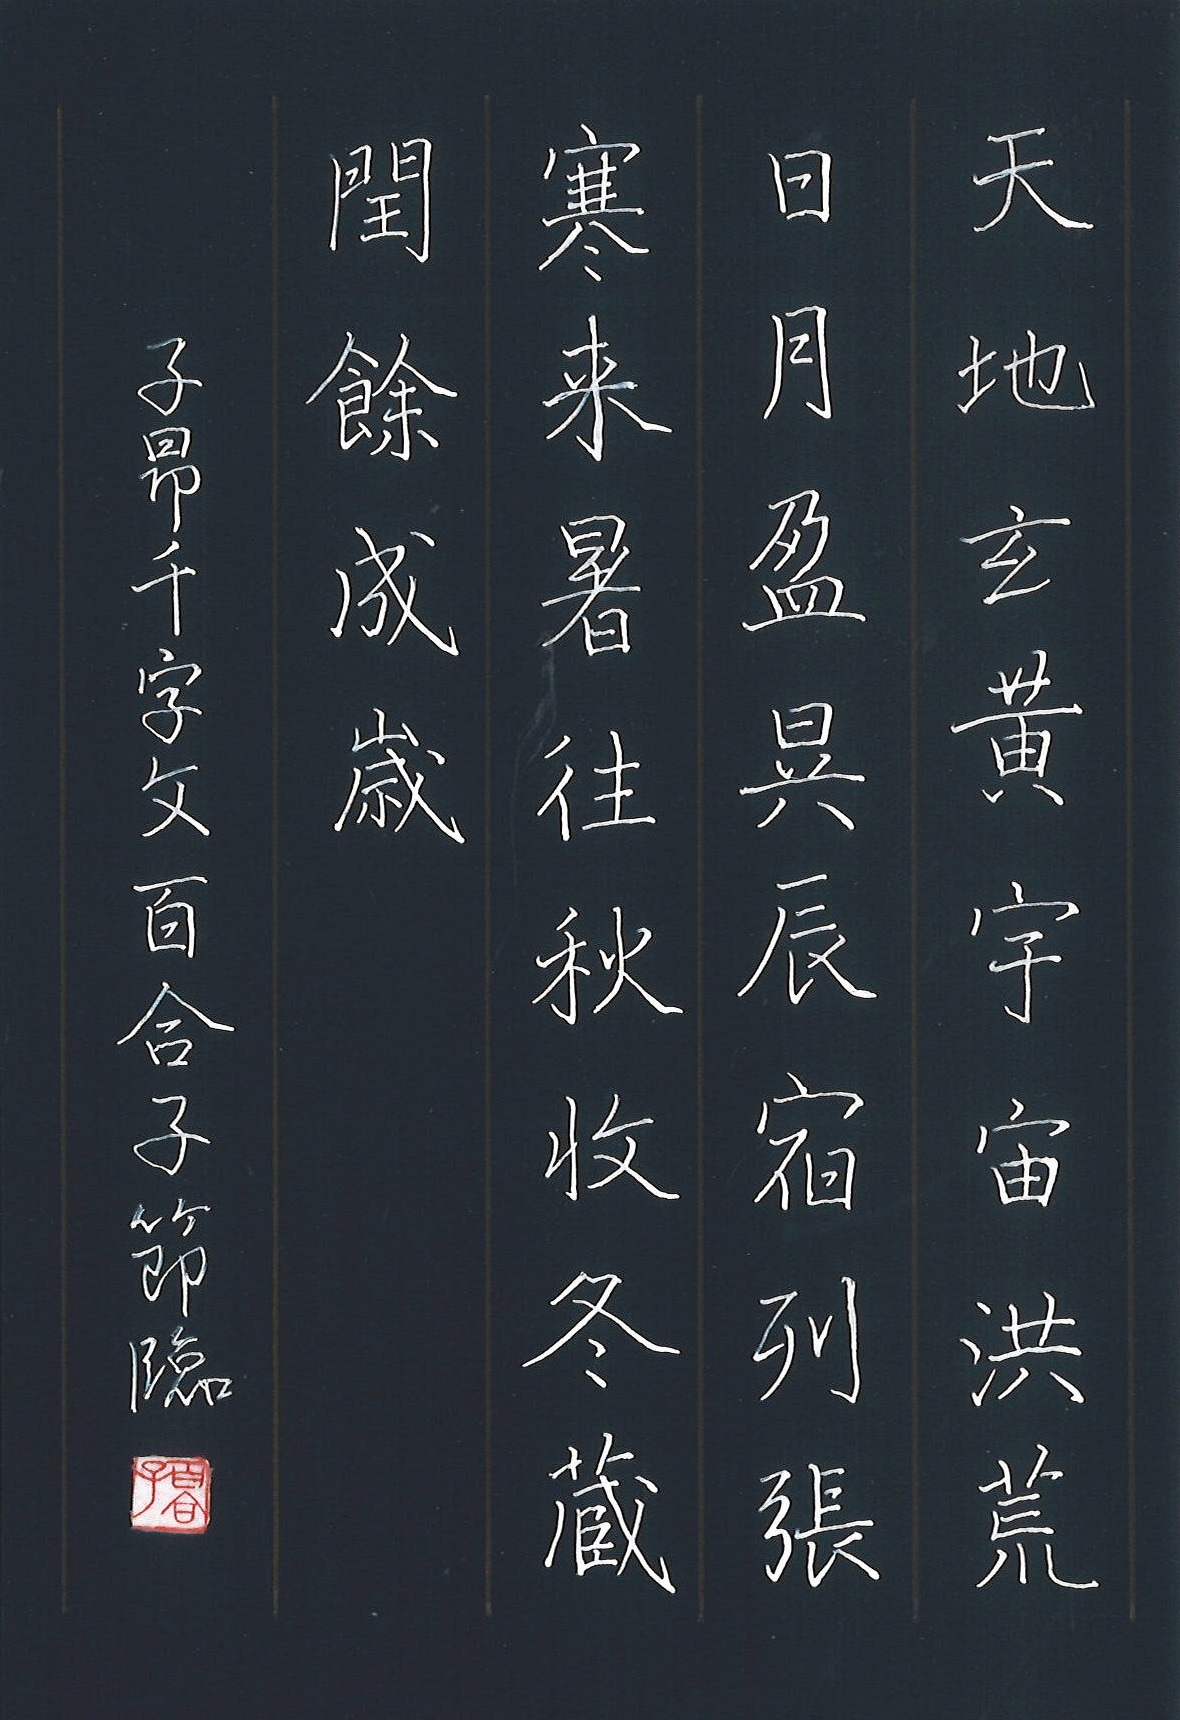 天地玄黄宇宙洪荒
日月盈昃辰宿列張
寒来暑往秋收冬蔵
閏餘成歳
子昂千字文百合子節臨
百合子